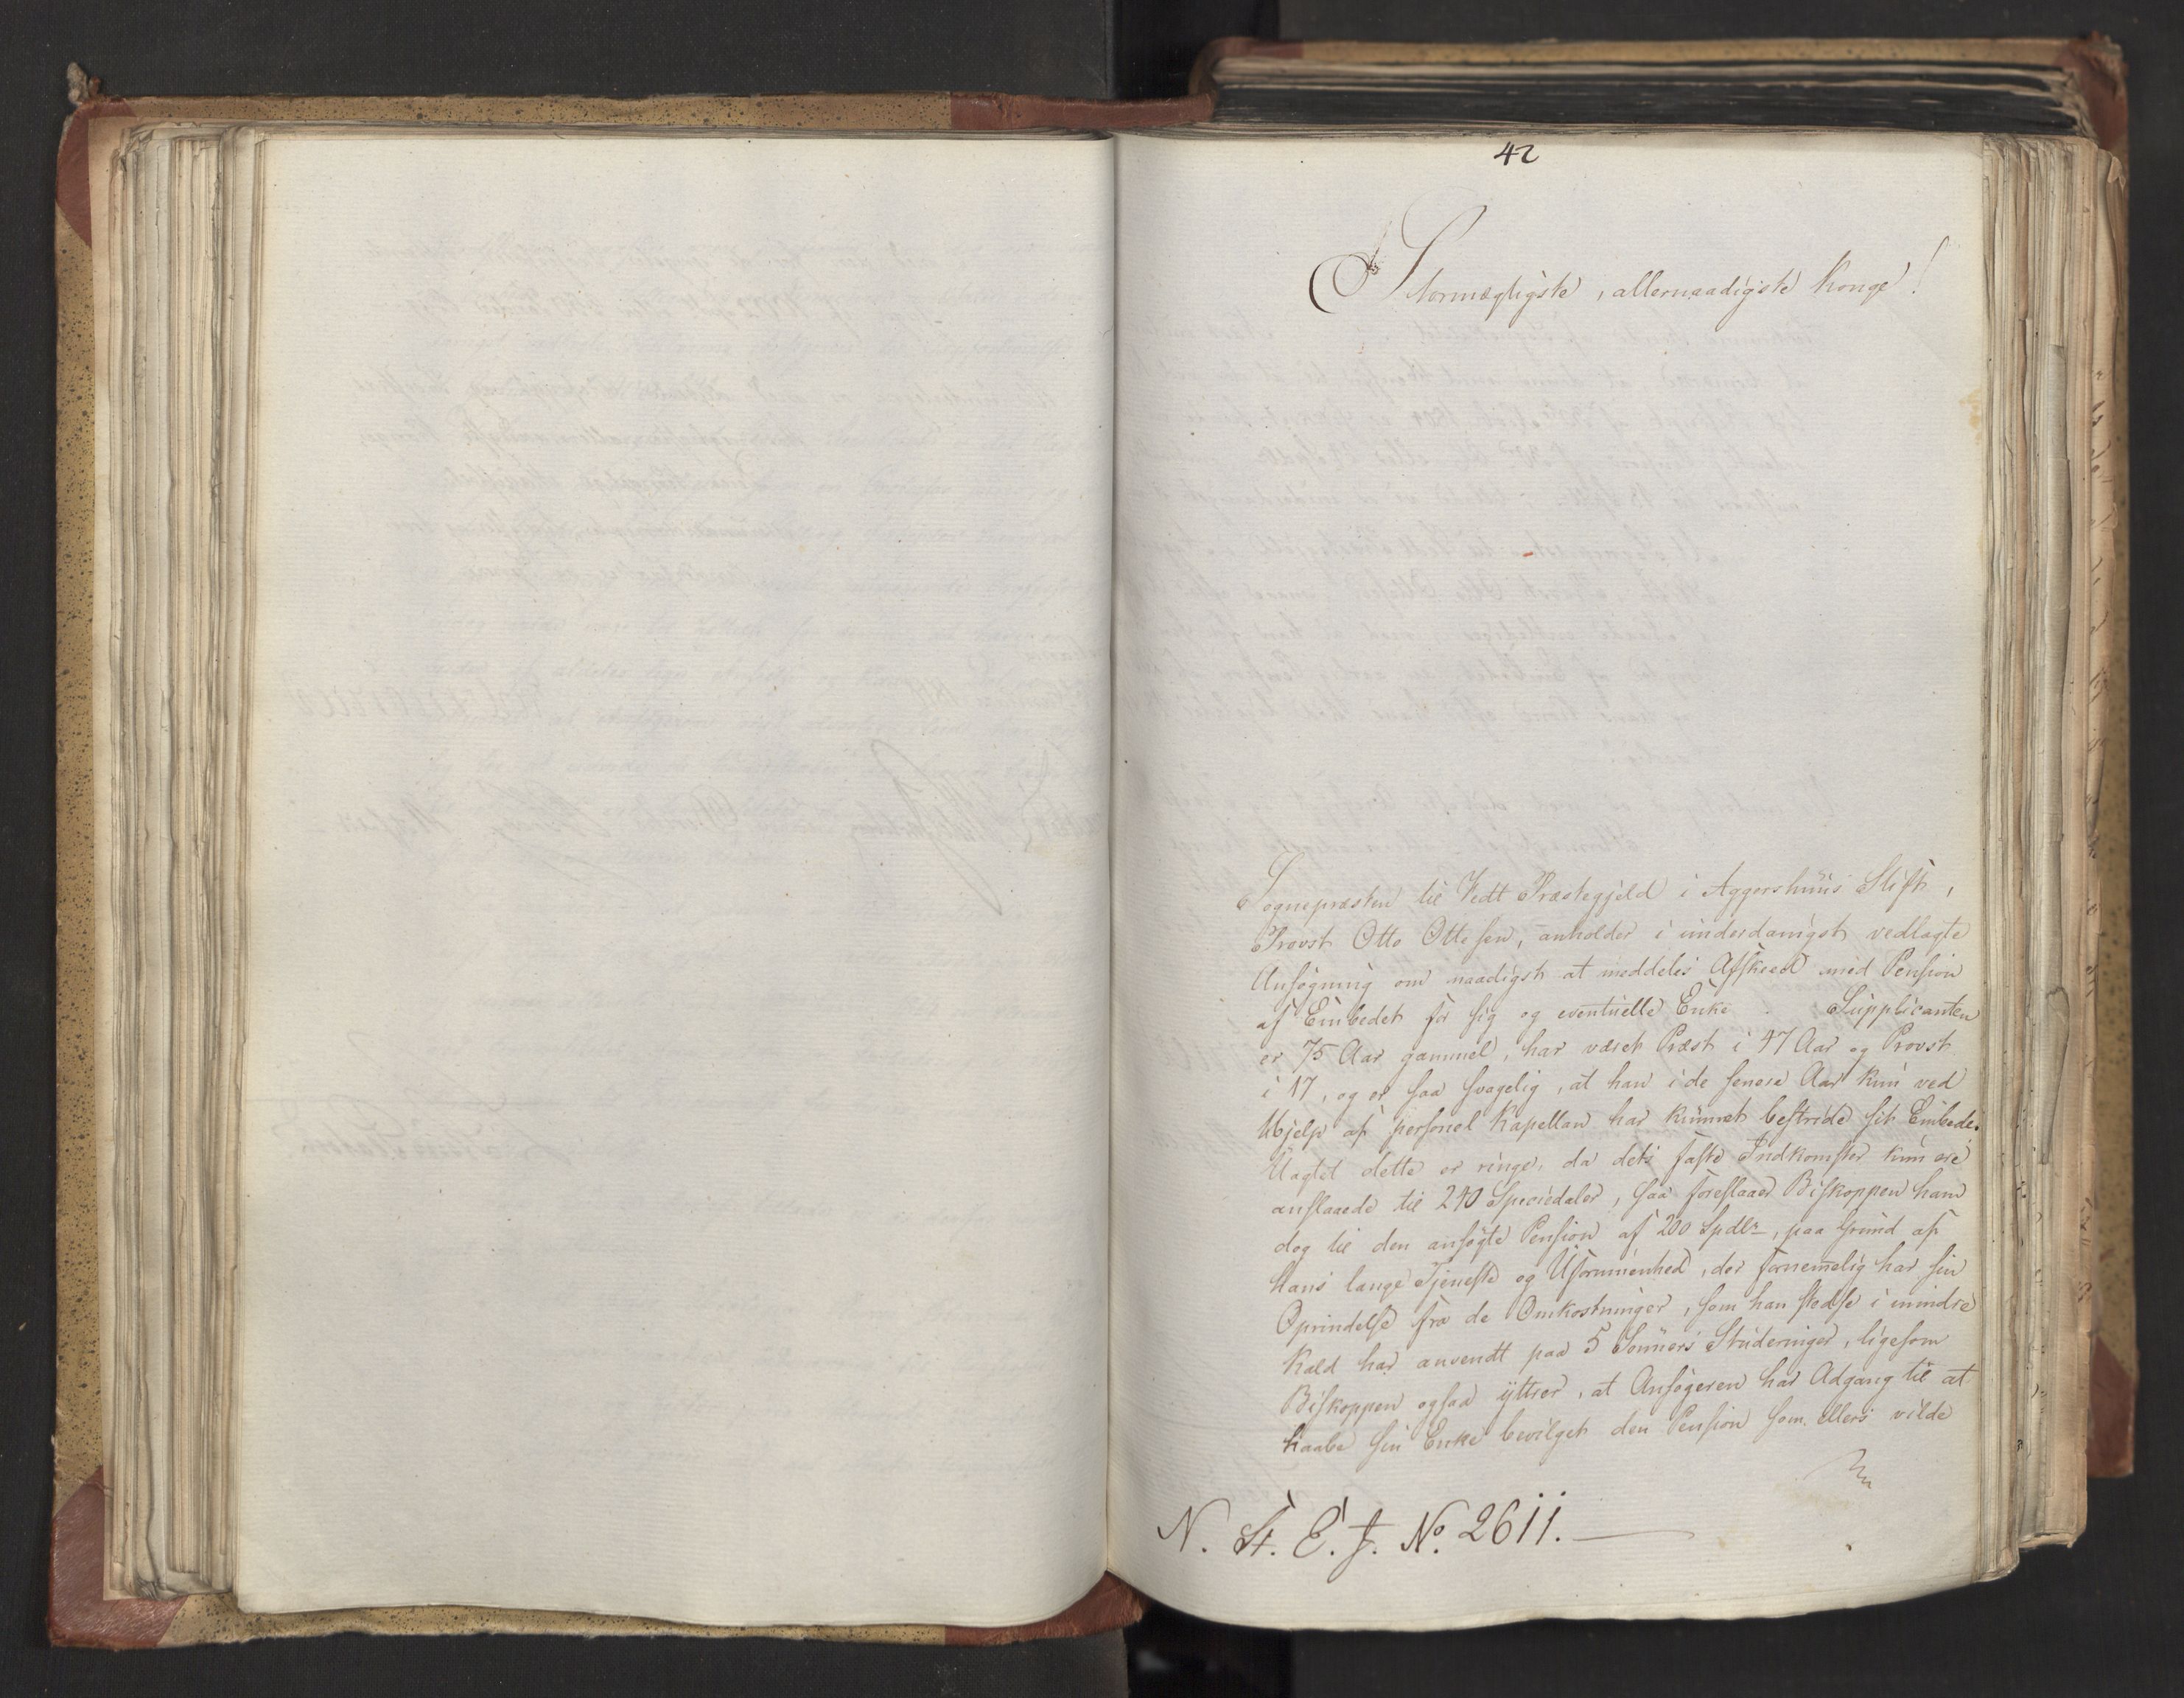 42
Stormægtigste, allernaadigste Konge!
Sognepræsten til Vedt Præstegjeld i Aggershuus Stift,
Provst Otto Ottesen, anholder i underdanigst vedlagte
Ansøgning om naadigst at meddeles Afskeed med Pension
af Embedet for sig og eventuelle Enke. Supplicanten
er 75 Aar gammel, har været Præst i 47 Aar og Provst
i 17, og er saa svagelig, at han i de senere Aar kun ved
Hjelp af personel Kapellan har kunnet bestride sit Embede.
Uagtet dette er ringe, da dets faste Indkomster kun ere
anslaaede til 240 Speciedaler, saa foreslaaer Biskoppen ham
dog til den ansøgte Pension af 200 Spdlr, paa Grund af
Hans lange Tjeneste og Uformuenhed, der fornemelig har sin
Oprindelse fra de Omkostninger, som han stedse i mindre
Kald har anvendt paa 5 Sønners Studeringer, ligesom
Biskoppen ogsaa yttrer, at Ansøgeren har Adgang til at
haabe sin Enke bevilget den Pension som ellers vilde
N. St. E. J. No. 2611.